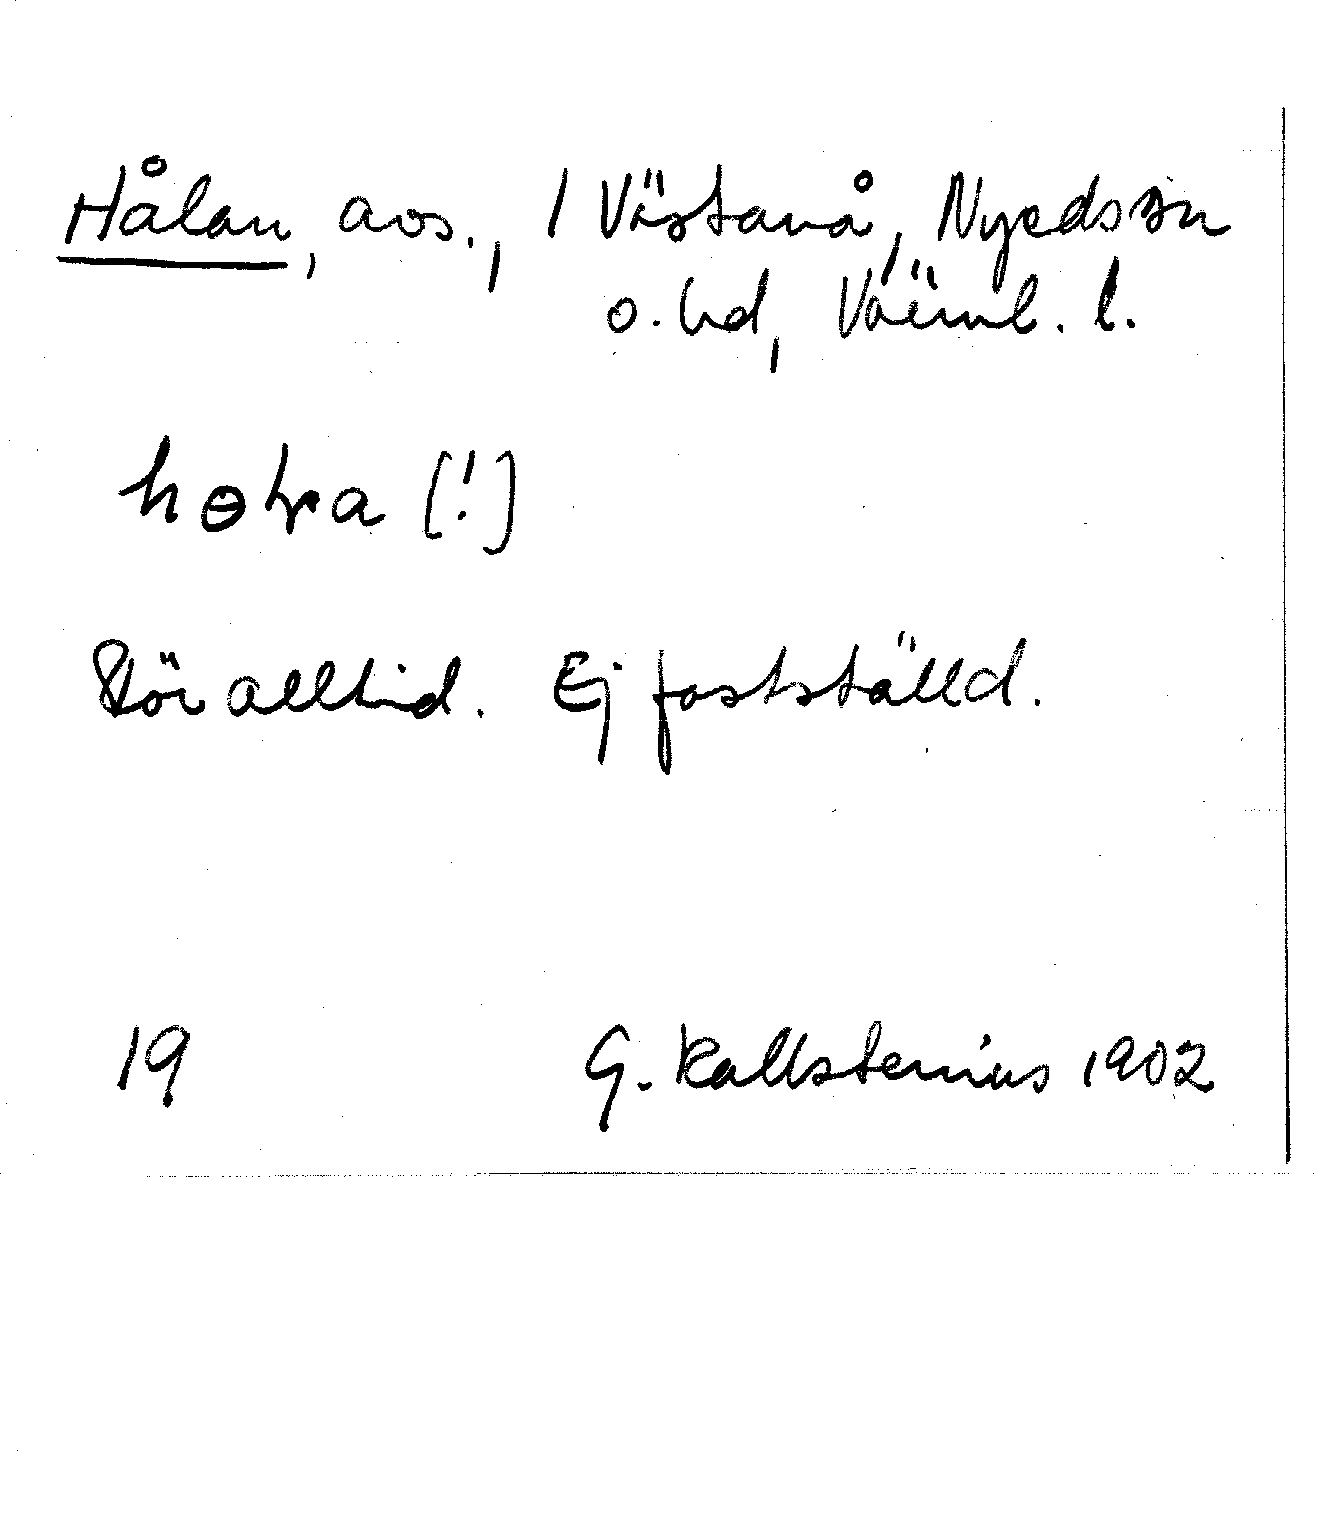 Hålan, avs., 1 Västanå, Nyeds sn
o. hd, Värml. l.
[!]
alltid. Ej fastställd.
19 G. Kallstenius 1902